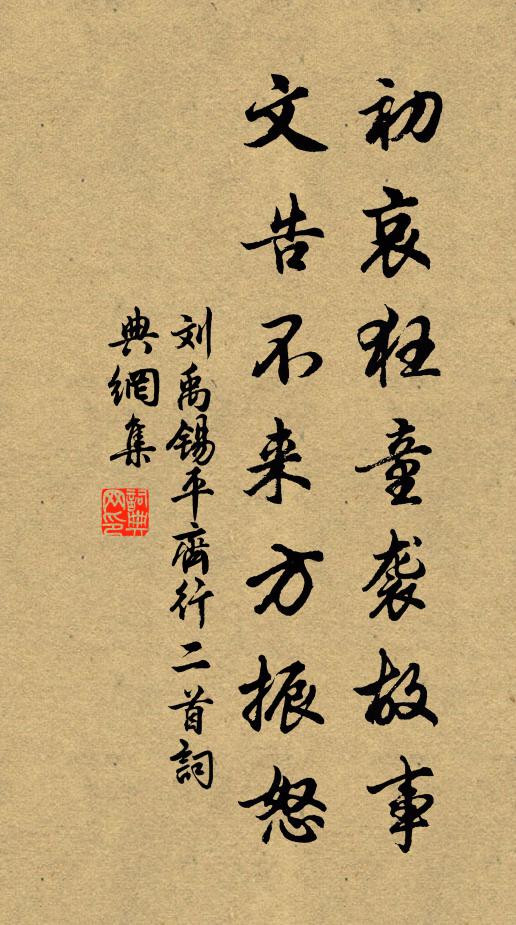 初哀狂童袭故事
文告不来方振怒
刘禹锡平齊行二首詞
典網集
詞典网印